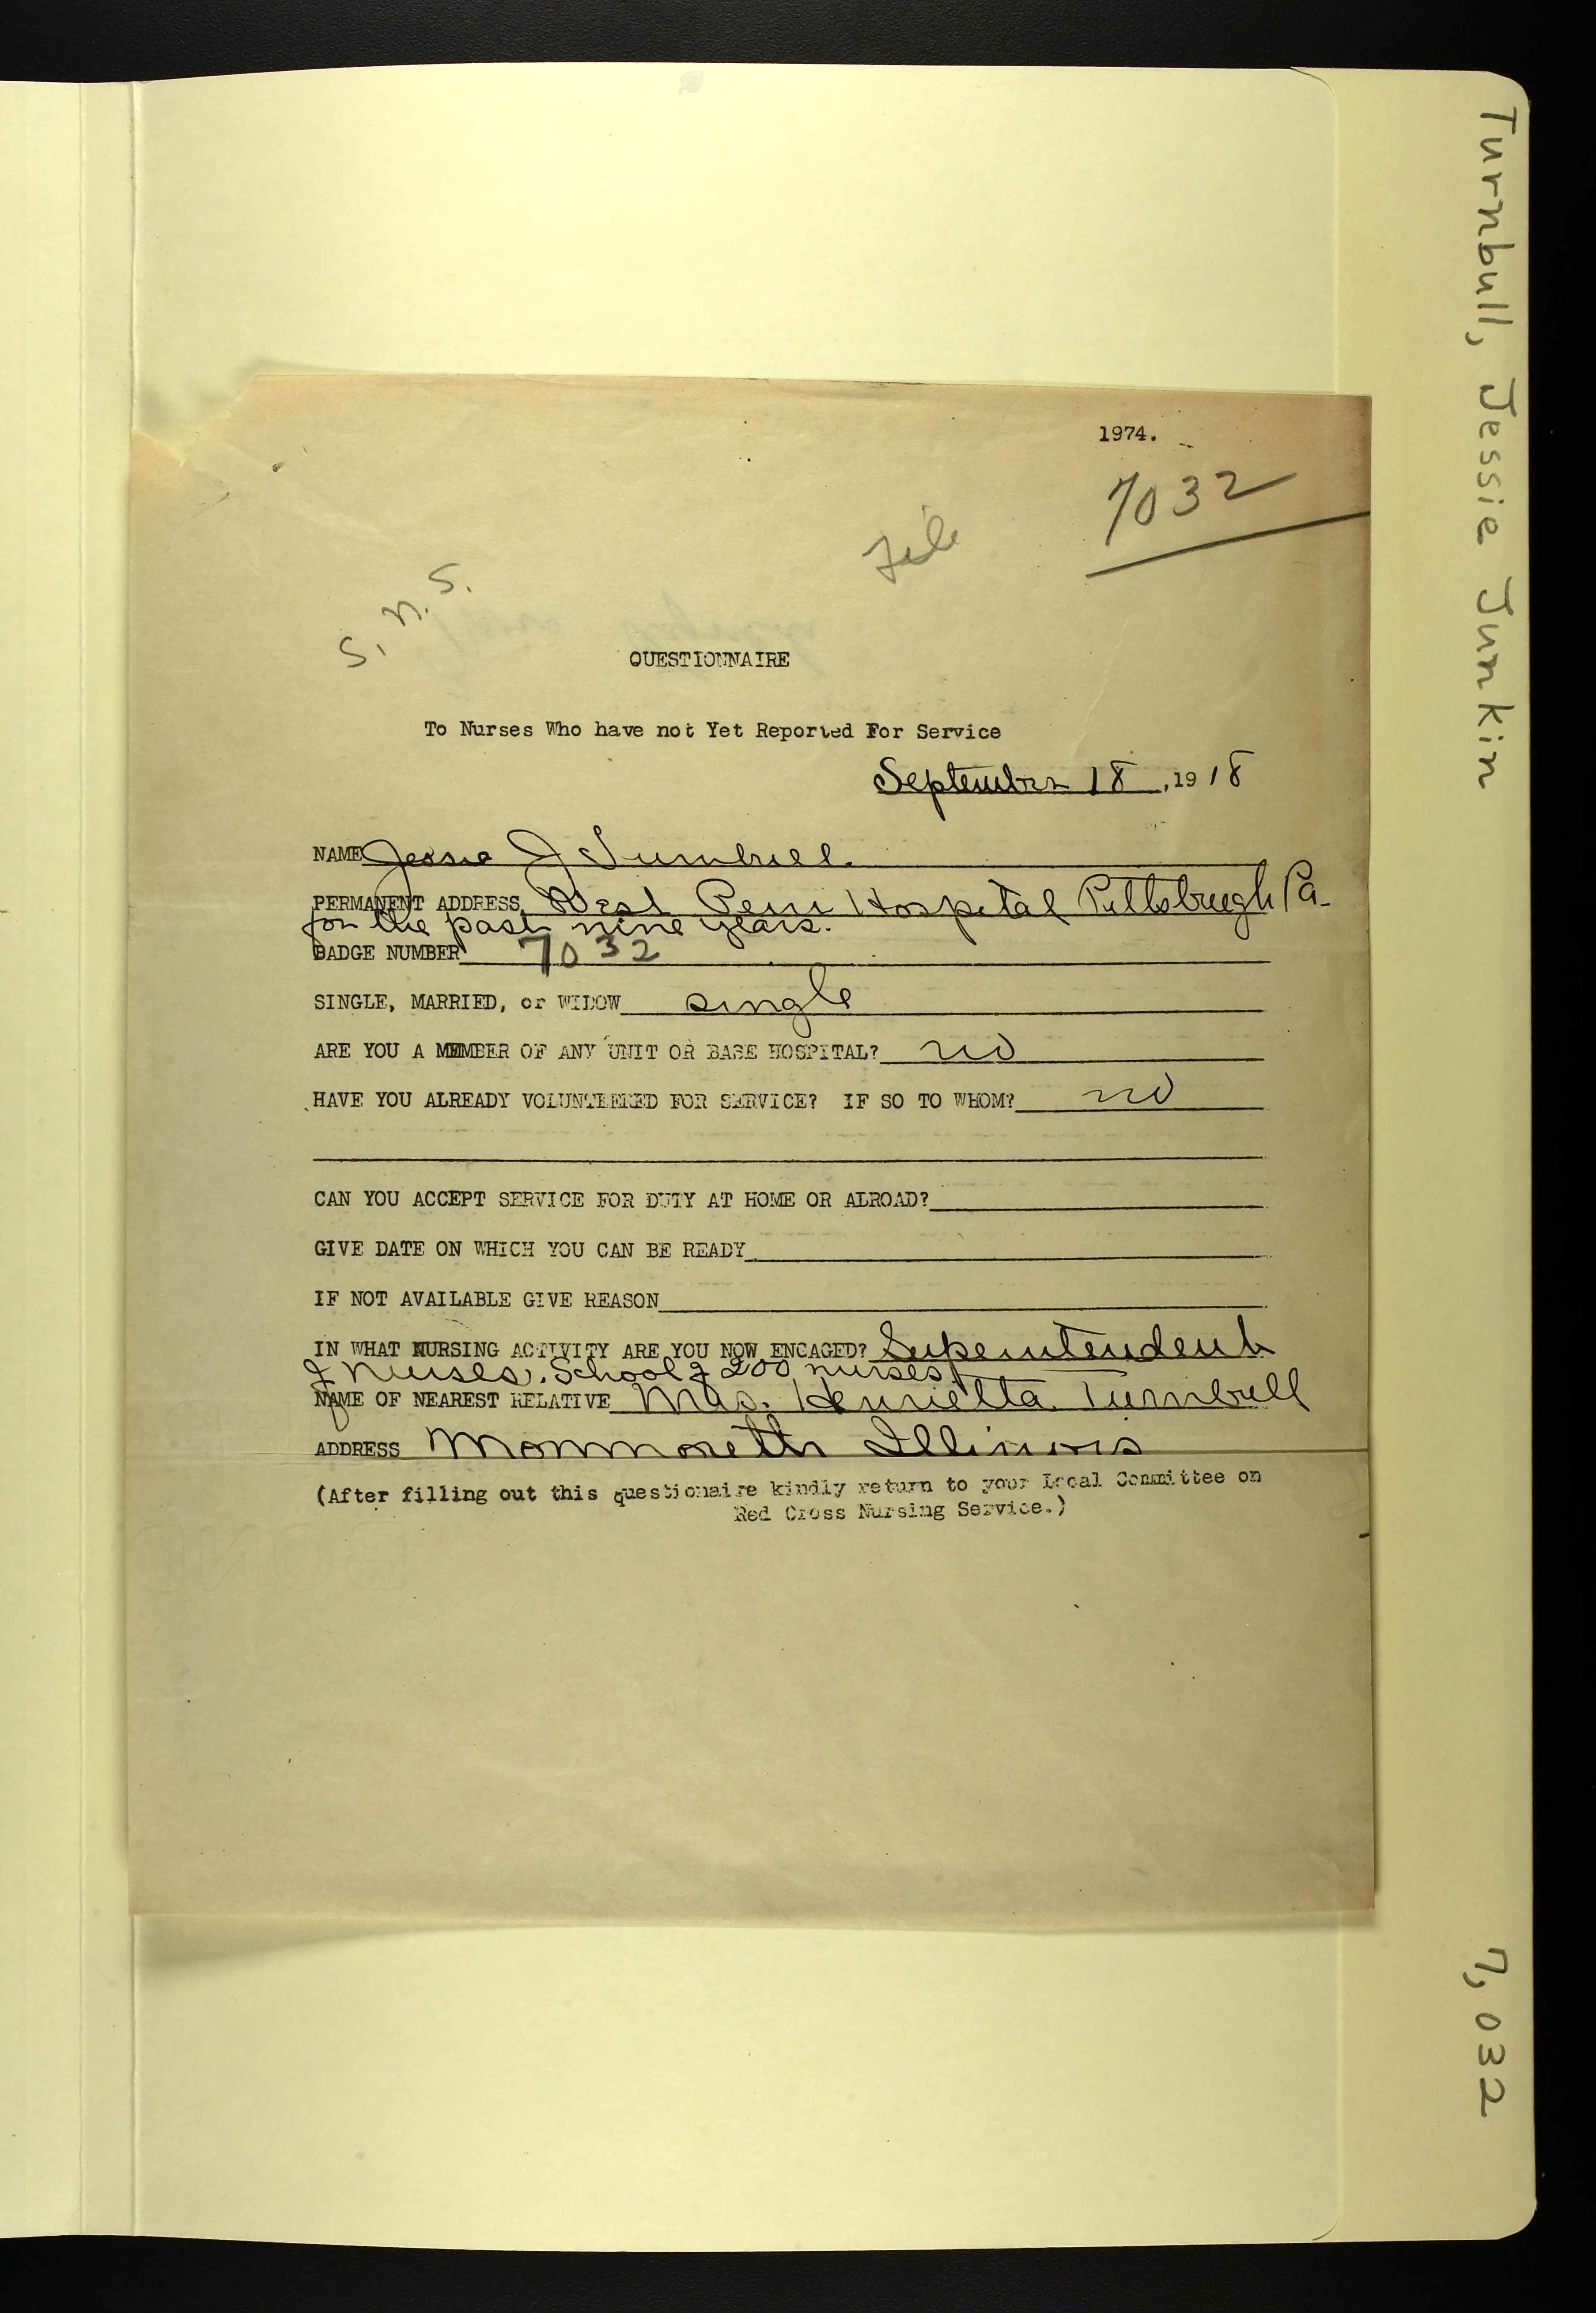 1974.
7032
File
S. N. S.
QUESTIONNAIRE
To Nurses Who have not Yet Reported For Service
September 18, 1918
NAME Jessie J Turnbull.
PERMANENT ADDRESS, West Penn Hospital Pittsburgh Pa.
for the past nine years.
BADGE NUMBER 7032
SINGLE, MARRIED, or WIDOW single
ARE YOU A MEMBER OF ANY UNIT OR BASE HOSPITAL? no
HAVE YOU ALREADY VOLUNTEERED FOR SERVICE? IF SO TO WHOM? no
CAN YOU ACCEPT SERVICE FOR DUTY AT HOME OR ABROAD?
GIVE DATE ON WHICH YOU CAN BE READY
IF NOT AVAILABLE GIVE REASON
IN WHAT NURSING ACTIVITY ARE YOU NOW ENGAGED? Superintendent
of Nurses. School of 200 nurses
NAME OF NEAREST RELATIVE Mrs. Henrietta Turnbull
ADDRESS Monmouth Illinois
(After filling out this questionaire kindly return to your Local Committee on
Red Cross Nursing Service.)
Turnbull, Jessie Junkin
7,032